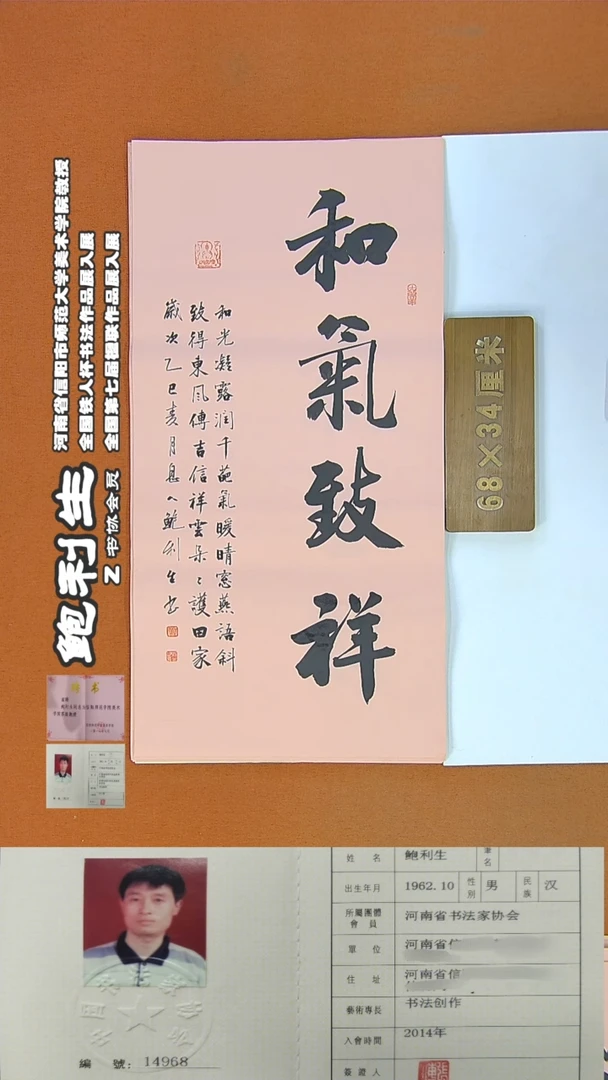 和氣致祥
和光凝露润千葩氣暖晴窓燕語斜
致得東风傳吉信祥雲朵〻護田家
歲次乙巳亥月息人鲍利生书
68×34厘米
河南省信阳市师范大学美术学院教授
全国铁人杯书法作品展入展
全国第七届楹联作品展入展
鲍利生
Z书协会员
姓 名 鲍利生 笔名
出生年月 1962.10 性别 男 民族 汉
所屬團體會員 河南省书法家协会
單 位 河南省信
住 址 河南省信
藝術專長 书法创作
入會時間 2014年
簽證人
編 號: 14968